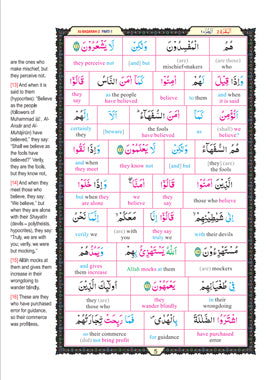 AL-BAQARAH-2 PART-1
are the ones who
make mischief, but
they perceive not.
[13] And when it is
said to them
(hypocrites): "Believe
as the people
(followers of
Muhammad
Ansâr and Al-
Muhâjirûn) have
believed," they say:
"Shall we believe as
the fools have
believed?" Verily,
they are the fools,
but they know not.
[14] And when they
meet those who
believe, they say:
"We believe," but
when they are alone
with their Shayâtîn
(devils – polytheists,
hypocrites), they say:
"Truly, we are with
you; verily, we were
but mocking."
[15] Allâh mocks at
them and gives them
increase in their
wrongdoing to
wander blindly.
[16] These are they
who have purchased
error for guidance,
so their commerce
was profitless.
هُمُ الْمُفْسِدُونَ وَلَٰكِنْ لَا يَشْعُرُونَ
(are) those who (are) mischief-makers [and] but they perceive not
وَإِذَا قِيلَ لَهُمْ آمِنُوا كَمَا آمَنَ النَّاسُ قَالُوا
and when it is said to them believe as the people have believed they say
أَنُؤْمِنُ كَمَا آمَنَ السُّفَهَاءُ أَلَا إِنَّهُمْ
(shall) we believe as the fools have believed [beware] certainly they
هُمُ السُّفَهَاءُ وَلَٰكِنْ لَا يَعْلَمُونَ وَإِذَا لَقُوا
[they] (are) the fools [and] but they know not and when they meet
الَّذِينَ آمَنُوا قَالُوا آمَنَّا وَإِذَا خَلَوْا
those who believe they say we believe but when they are alone
إِلَىٰ شَيَاطِينِهِمْ قَالُوا إِنَّا مَعَكُمْ إِنَّمَا نَحْنُ
with their devils they say truly we (are) with you verily we
مُسْتَهْزِئُونَ اللَّهُ يَسْتَهْزِئُ بِهِمْ وَيَمُدُّهُمْ
(are) mockers Allah mocks at them and gives them increase
فِي طُغْيَانِهِمْ يَعْمَهُونَ أُولَٰئِكَ الَّذِينَ
in their wrongdoing they wander blindly they (are) those who
اشْتَرَوُا الضَّلَالَةَ بِالْهُدَىٰ فَمَا رَبِحَتْ تِجَارَتُهُمْ
have purchased error for guidance so their commerce (did) not bring profit
5